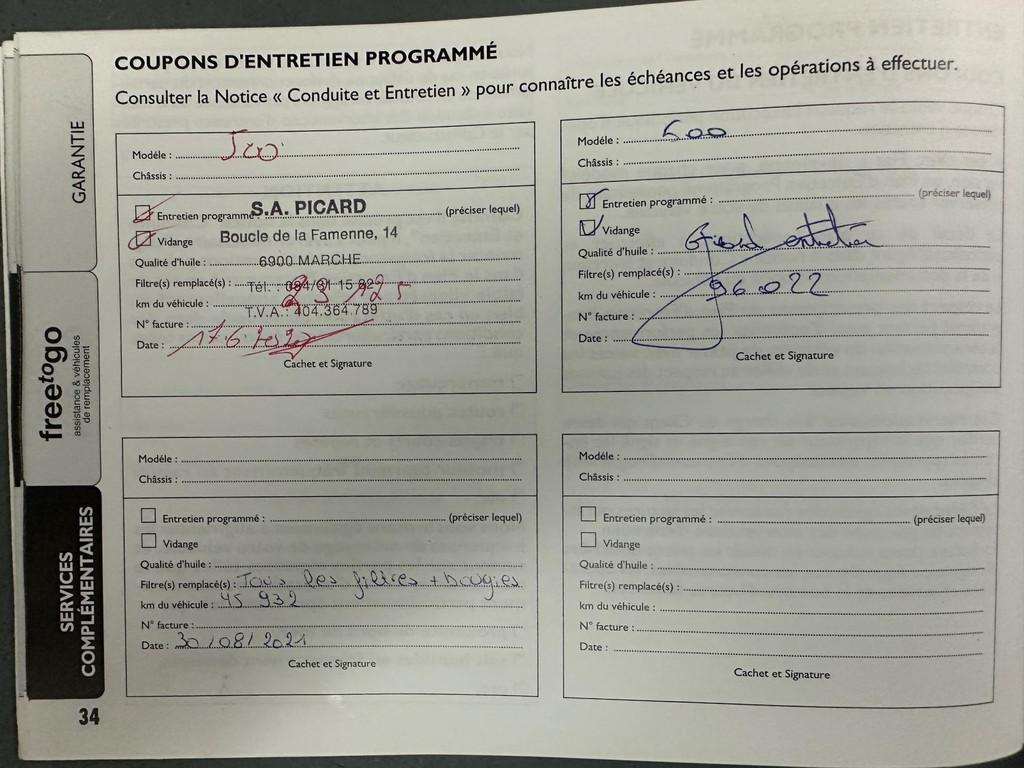 COUPONS D'ENTRETIEN PROGRAMMÉ
Consulter la Notice « Conduite et Entretien » pour connaître les échéances et les opérations à effectuer.
GARANTIE
freetogo
assistance & véhicules
de remplacement
SERVICES
COMPLÉMENTAIRES
34
Modèle : 500
Châssis :
Entretien programmé S.A. PICARD (préciser lequel)
Vidange Boucle de la Famenne, 14
Qualité d'huile : 6900 MARCHE
Filtre(s) remplacé(s) : Tél. : 084/31 15 82
km du véhicule : 29125
T.V.A. : 404.364.789
N° facture :
Date : 17.6.
Cachet et Signature
Modèle : 500
Châssis :
Entretien programmé : (préciser lequel)
Vidange
Qualité d'huile : Grand entretien
Filtre(s) remplacé(s) :
km du véhicule : 96.022
N° facture :
Date :
Cachet et Signature
Modèle :
Châssis :
Entretien programmé : (préciser lequel)
Vidange
Qualité d'huile :
Filtre(s) remplacé(s) : Tous les filtres + bougies
km du véhicule : 45 932
N° facture :
Date : 30/08/2021
Cachet et Signature
Modèle :
Châssis :
Entretien programmé : (préciser lequel)
Vidange
Qualité d'huile :
Filtre(s) remplacé(s) :
km du véhicule :
N° facture :
Date :
Cachet et Signature